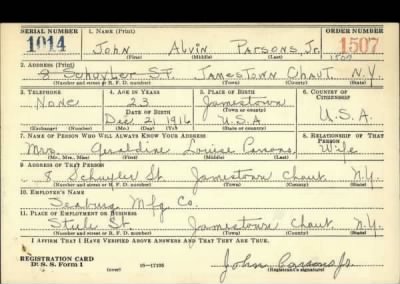 SERIAL NUMBER 1. NAME (Print) ORDER NUMBER
1014 John Alvin Parsons, Jr. 1507
(First) (Middle) (Last)
2. ADDRESS (Print)
8 Schuyler St. Jamestown Chaut. N.Y.
(Number and street or R. F. D. number) (Town) (County) (State)
3. TELEPHONE 4. AGE IN YEARS 5. PLACE OF BIRTH 6. COUNTRY OF CITIZENSHIP
None 23 Jamestown
DATE OF BIRTH (Town or county)
Dec. 21 1916 U.S.A U.S.A.
(Exchange) (Number) (Mo.) (Day) (Yr.) (State or country)
7. NAME OF PERSON WHO WILL ALWAYS KNOW YOUR ADDRESS 8. RELATIONSHIP OF THAT PERSON
Mrs. Geraldine Louise Parsons Wife
(Mr., Mrs., Miss) (First) (Middle) (Last)
9. ADDRESS OF THAT PERSON
8 Schuyler St. Jamestown Chaut. N.Y.
(Number and street or R. F. D. number) (Town) (County) (State)
10. EMPLOYER'S NAME
Seaburg Mfg Co.
11. PLACE OF EMPLOYMENT OR BUSINESS
Steele St. Jamestown Chaut. N.Y.
(Number and street or R. F. D. number) (Town) (County) (State)
I AFFIRM THAT I HAVE VERIFIED ABOVE ANSWERS AND THAT THEY ARE TRUE.
REGISTRATION CARD
D. S. S. Form 1 16—17105 John Parsons Jr
(Registrant's signature)